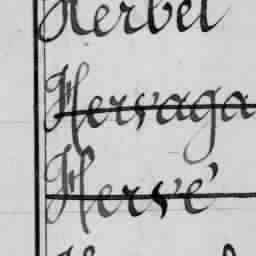 Herbel
Hervaga
Hervé